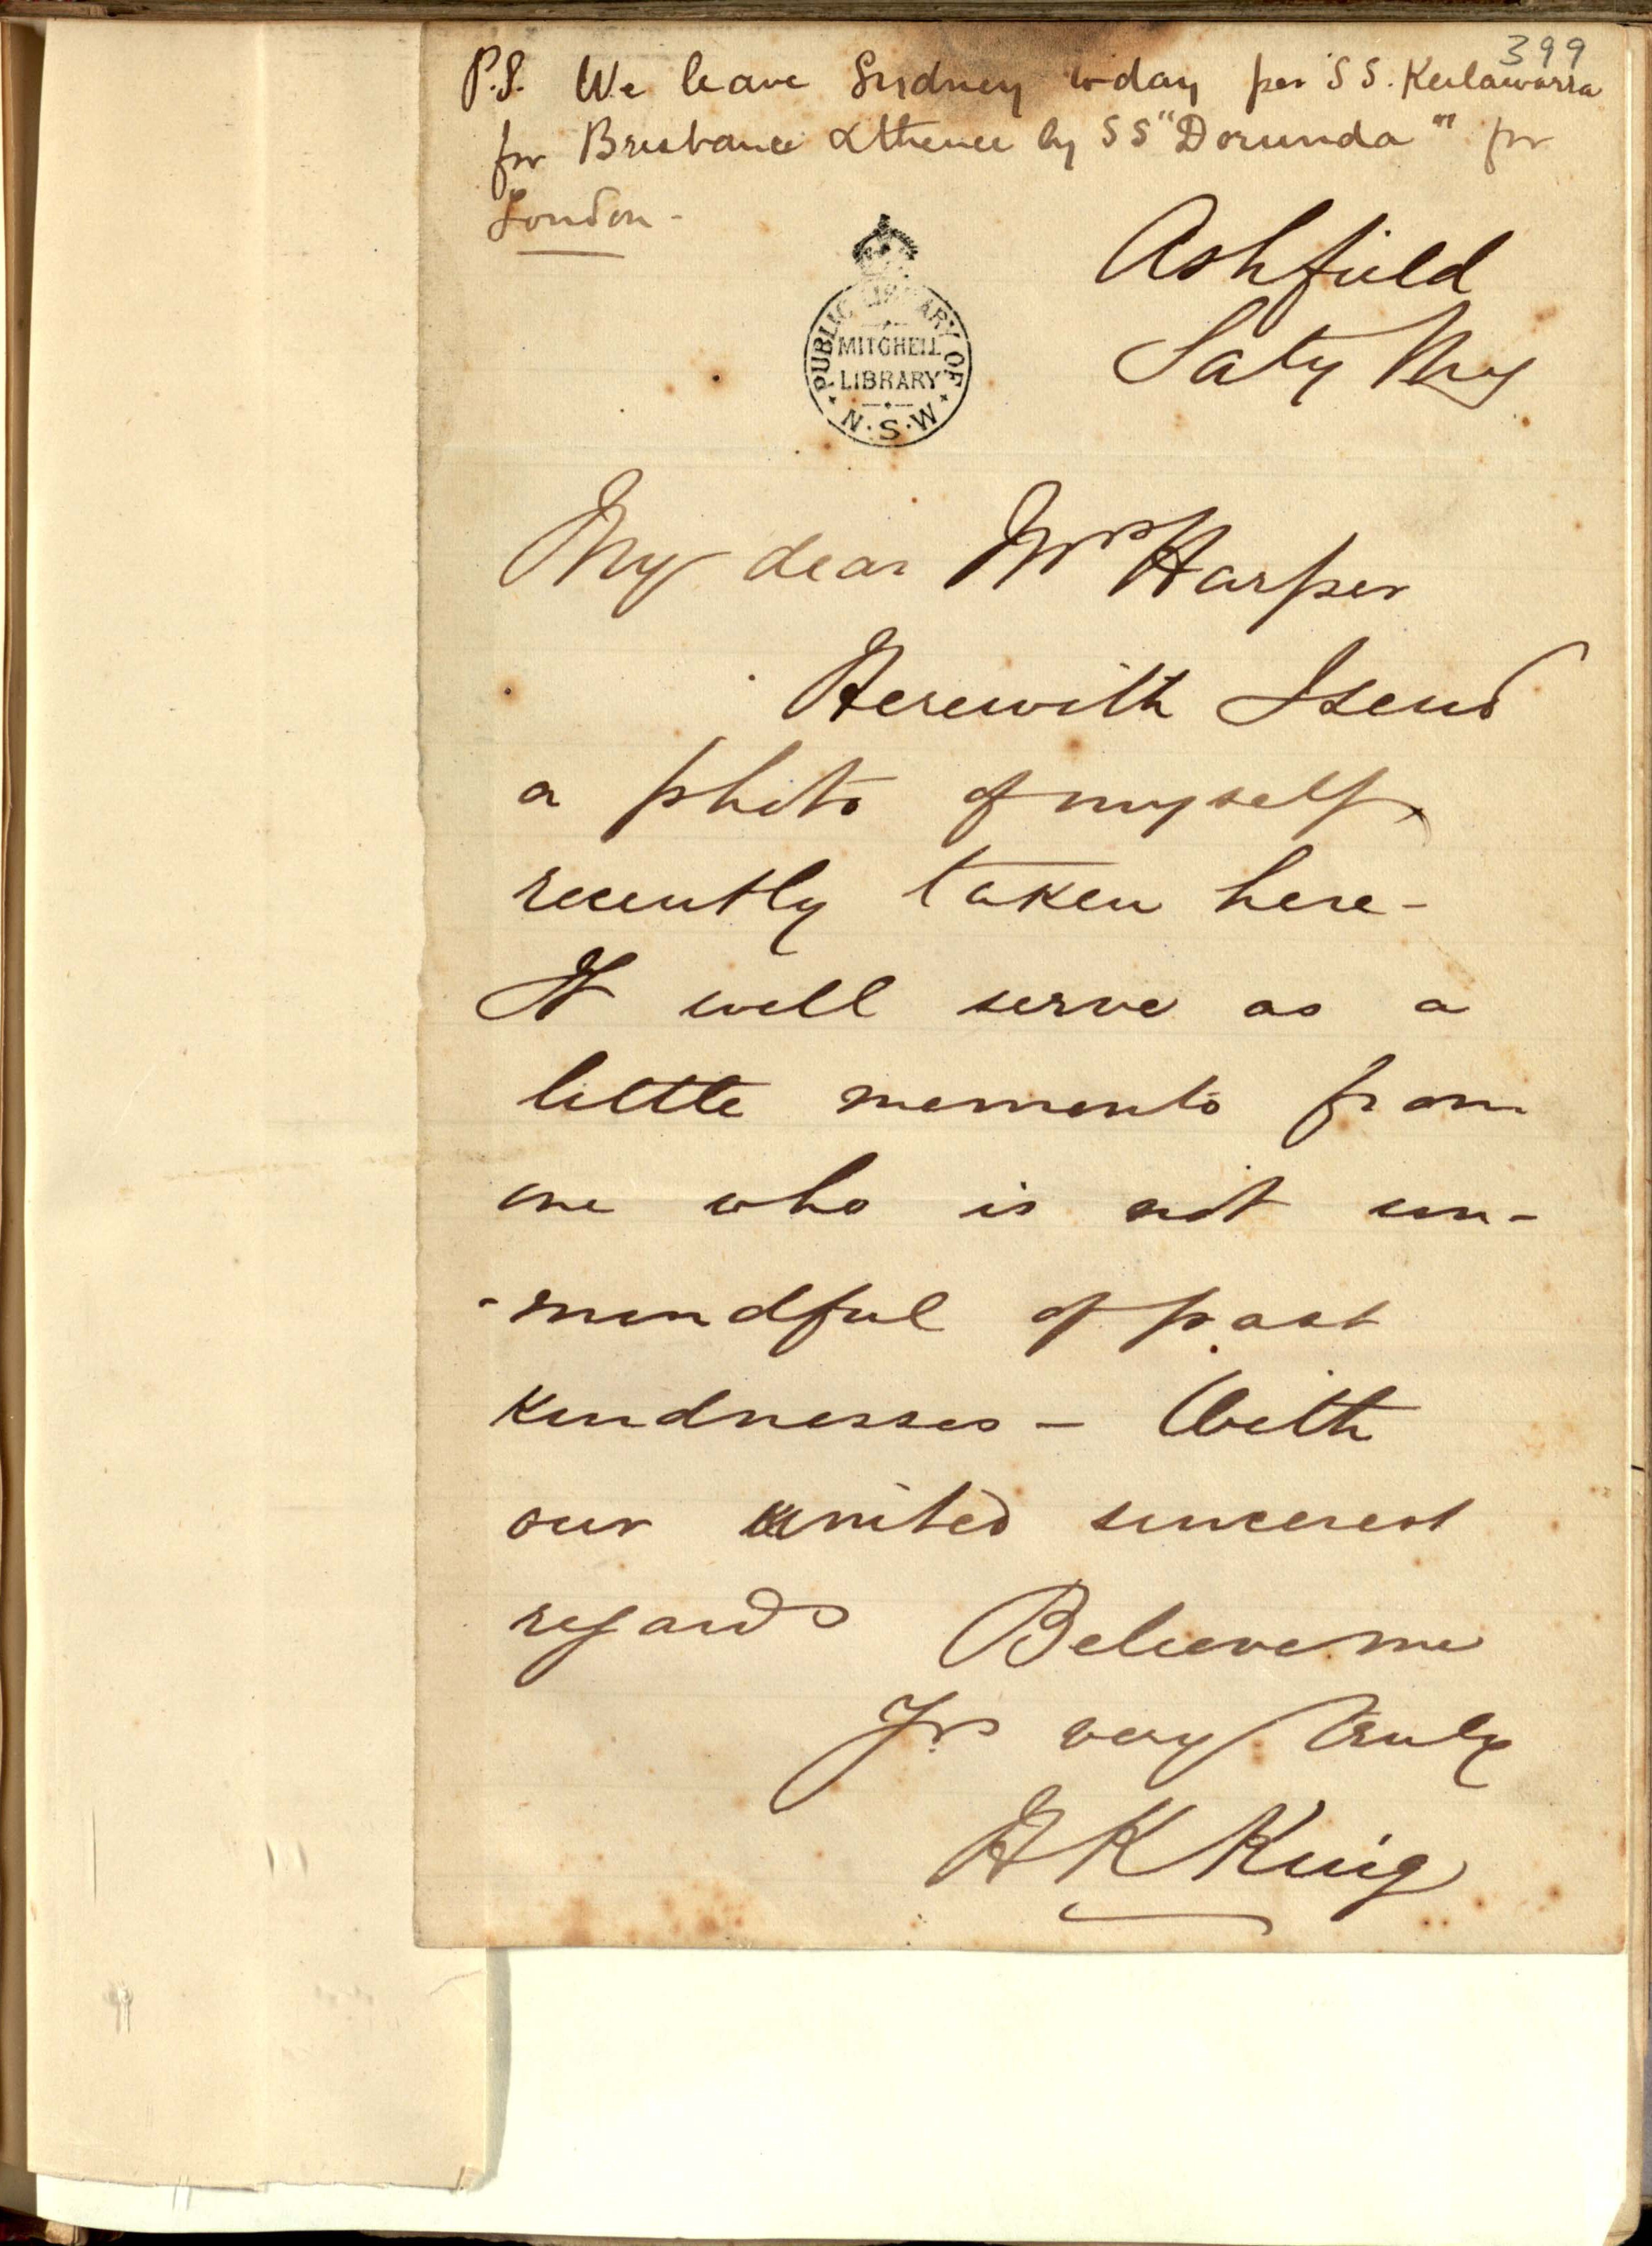 399
P.S. We leave Sydney to-day per S S. Keilawarra
for Brisbane & thence by S S "Dorunda" for
London -
Ashfield
Saty Mg
PUBLIC LIBRARY OF
MITCHELL
LIBRARY
N.S.W
My dear Mrs Harper
Herewith I send
a photo of myself
recently taken here -
It will serve as a
little memento from
one who is not un-
-mindful of past
kindnesses - With
our united sincerest
regards Believe me
Yrs very truly
H K King